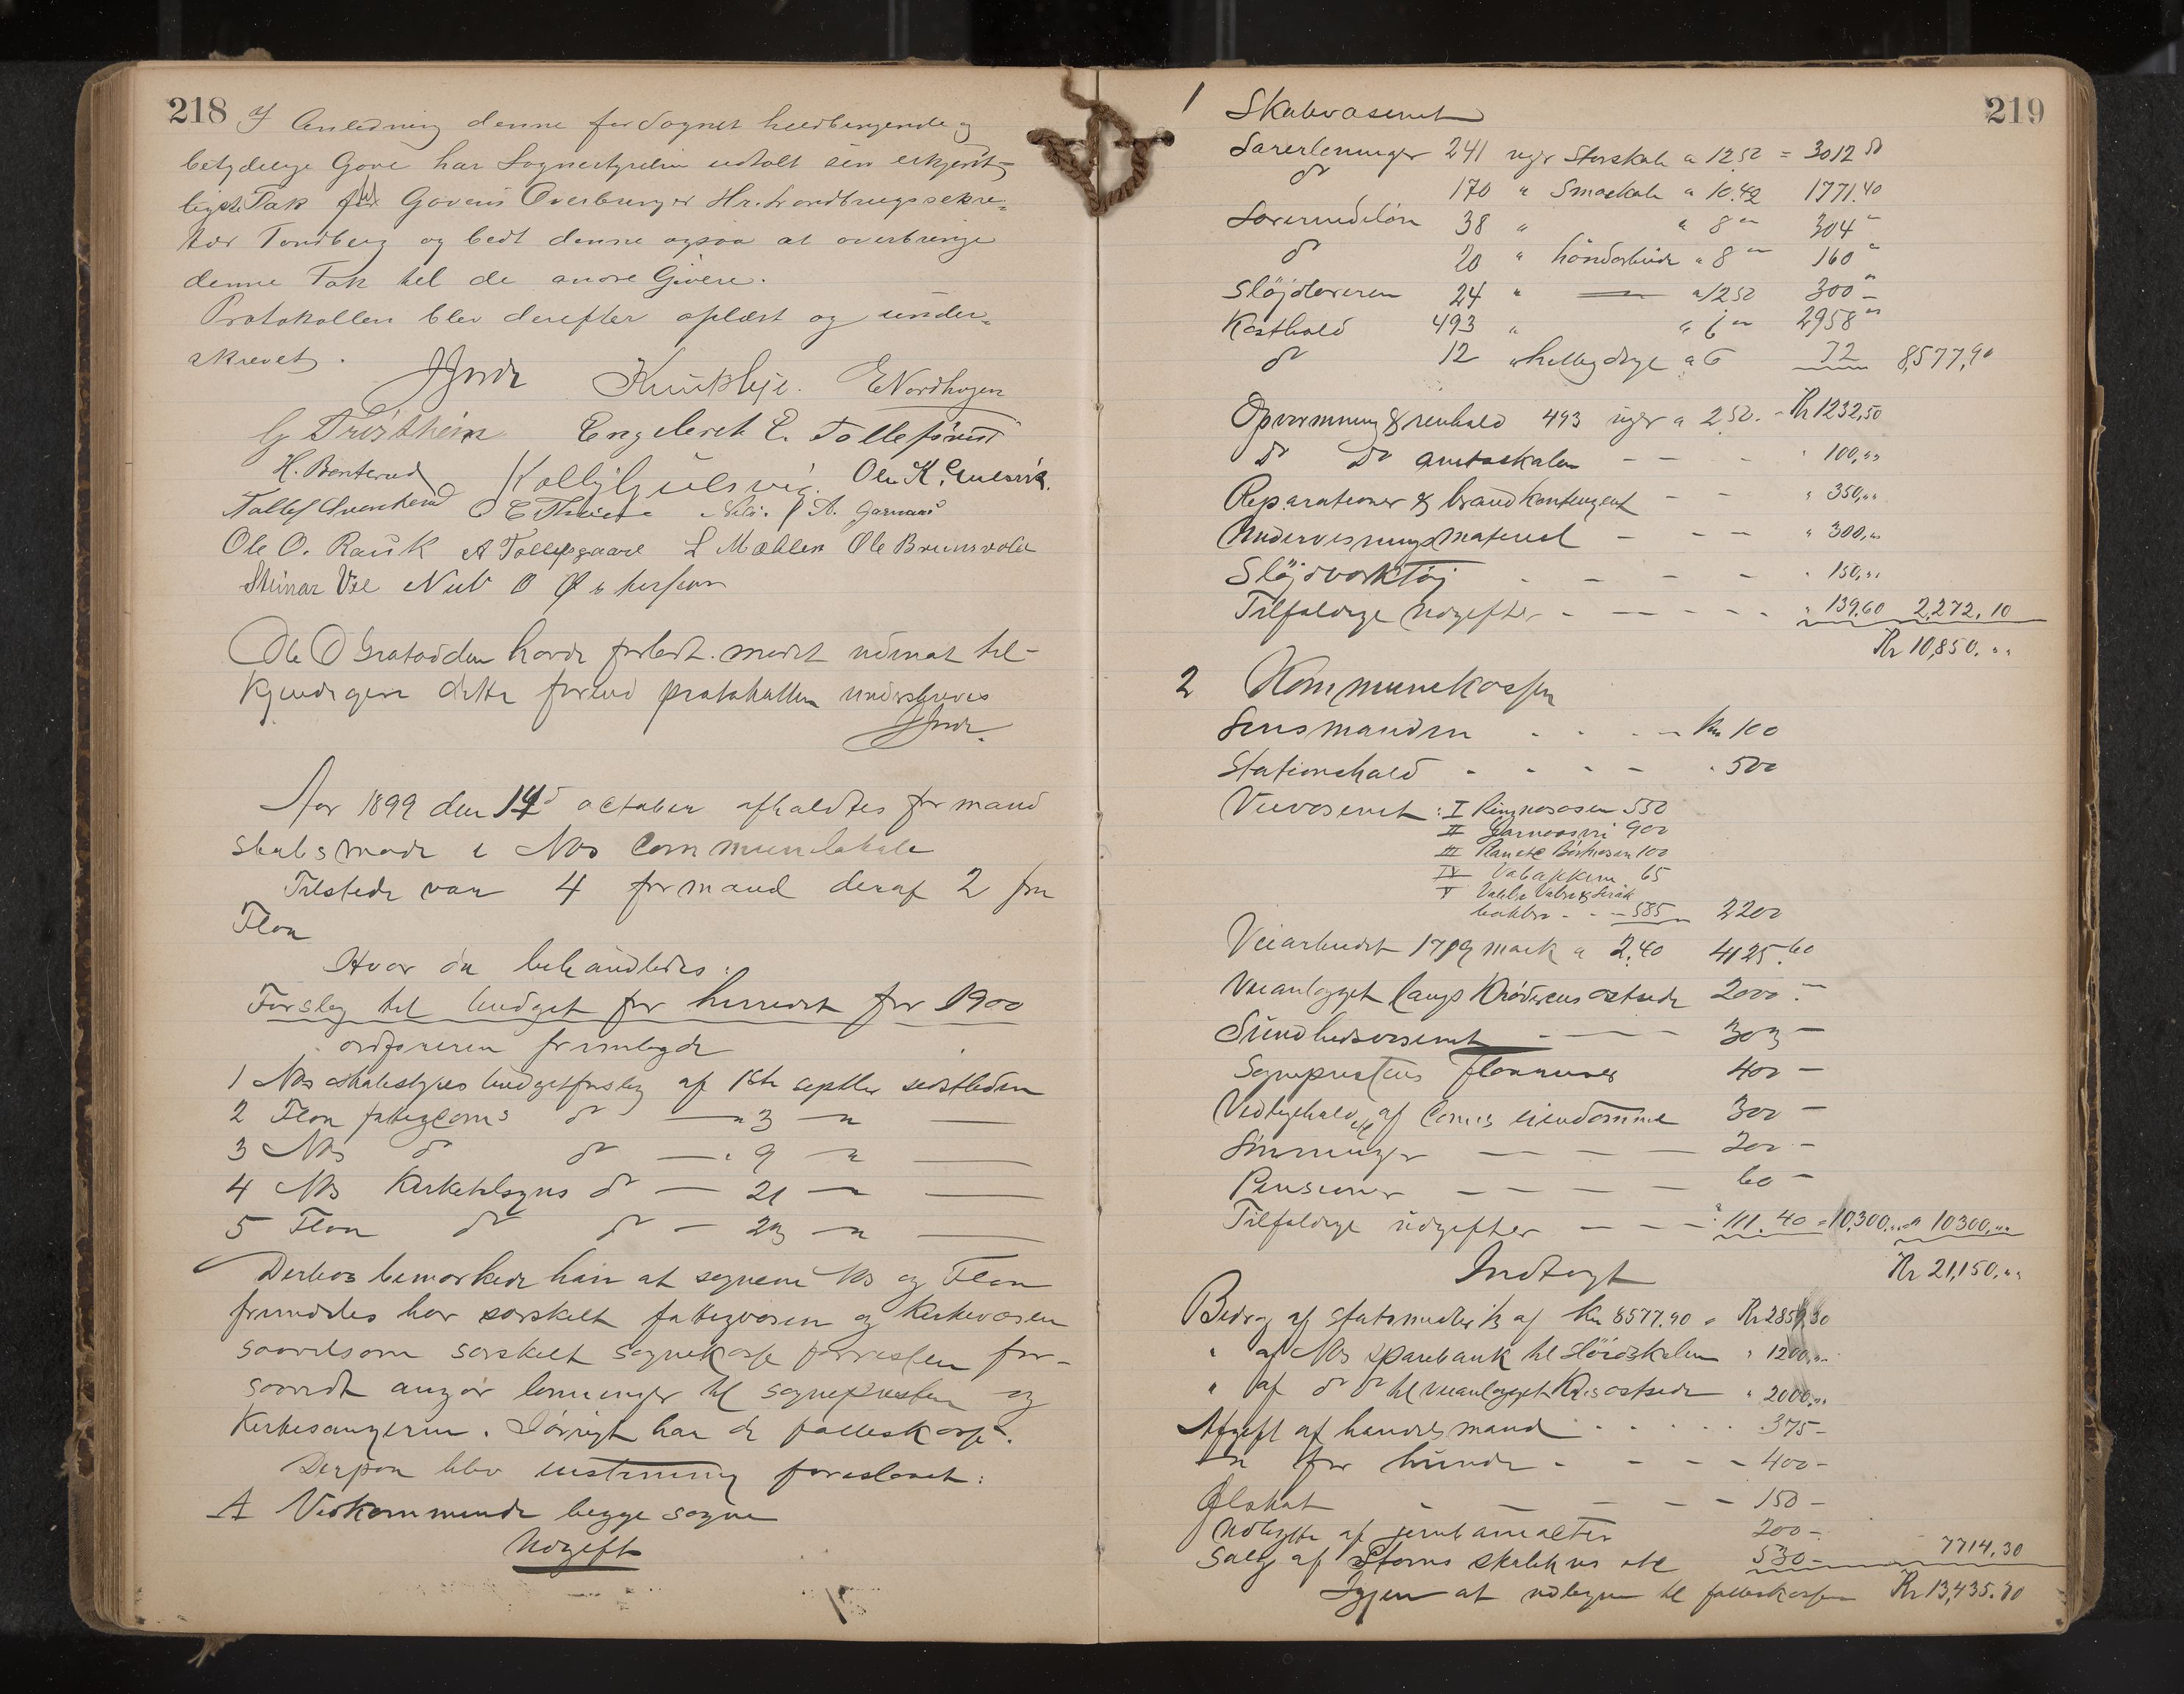 218
af Anledning denne for Sognet hædbringende og
betydelige Gave har Sognestyrelsen udtalt sin erkjendt-
ligste Tak til Gavens Overbringer Hr. Landbrugssekre-
tær Tandberg og bedt denne ogsaa at overbringe
denne Tak til de andre Givere.
Protokollen blev derefter oplæst og under-
skrevet.
ENordhagen
G Trüstheim Engebret E. Tollefsrud
H. Bonterud Kolbj. Gulsvig. Ole K. Gulsvik.
A. Garnaas
Ole O. Rauk A Tollefsgaard L Mæhlen Ole Brunsvold
Steinar Væ
Ole O Bratodden havde forladt mødet uden at til-
kjendegive dette forend protokollen underskreves
Aar 1899 den 14d october afholdtes formand
skabsmøde i Næs Communelokale
Tilstede var 4 formænd deraf 2 fra
Flaa
Hvor da behandledes:
Forslag til budget for herredet for 1900
ordføreren fremlagde
1 Næs skolestyres budgetforslag af 16de septbr sidstleden
2 Flaa fattigcoms do — 3 — "
3 Næs do do — " 9 — "
4 Næs Kirketilsyns do — 21 — "
5 Flaa do do — 23 — "
Derhos bemærkede han at sognene Næs og Flaa
fremdeles har særskilt fattigvæsen og Kirkevæsen
saavelsom særskilt sognekasse forresten for-
saavidt angaar lønninger til sognepresten og
Kirkesangeren. Iøvrigt har de fælleskasse.
Derpaa blev indstilling foreslaaet:
A Vedkommende begge sogne
Udgift
219
1 Skolevæsenet
Lærerlønninger 241 uger Storskole a 12.50 = 3012.50
do 170 " Smaaskole a 10.42 1771.40
Lærerindeløn 38 " " 8 " 304 "
do 20 " haandarbeide " 8 " 160 "
Sløjdlæreren 24 " — a 12.50 300 "
Kosthold 493 " " 6 " 2958 "
do 12 " helligdage a 6 72 8,577,90
Opvarmning & renhold 493 uger a 2.50. - Kr 1232,50
Do Do amtsskolen — — - " 100,""
Reparationer & brandkontingent — — " 350,""
Undervisningsmateriel — — — " 300,""
Sløjdværktøj - — — — " 150,""
Tilfældige udgifter - — — — - " 139.60 2,272.10
Kr 10,850.""
2 Kommunekassen
Lensmanden - - - — Kr 100
Stationshold - - - — " 500
Veivæsenet: I Ringnesaasen 550
II Garnaasvei 900
III 100
IV 65
V
bakken - - — 585 2200
Veiarbeidet 1719 mark a 2.40 4125.60
Veianlægget langs Krøderens østside 2000.—
Sundhedsvæsenet — — — 303 —
Sognepresten Flommuses 400 —
Vedligehold af Coms eiendomme 300 —
Lønninger — — — — 200 —
Pensioner — — — — 60 —
Tilfældige udgifter — — — " 111.40 = 10,300,"" a 10300,""
Kr 21,150.""
Indtægt
Bidrag af statsmidler ⅓ af Kr 8577.90 = Kr 2859.30
" af Næs sparebank til sløidskolen " 1200,""
" af do do til veianlægget Kr.s østside " 2000,""
Afgift af handelsmænd - - - - - 375 —
" for hunde - — - — 400 —
Ølskat - — — — — 150 —
Udbytte af 200 —
Salg af Storms skolehus etc 530 — 7714.30
Igjen at udligne til fælleskassen Kr 13,435.70